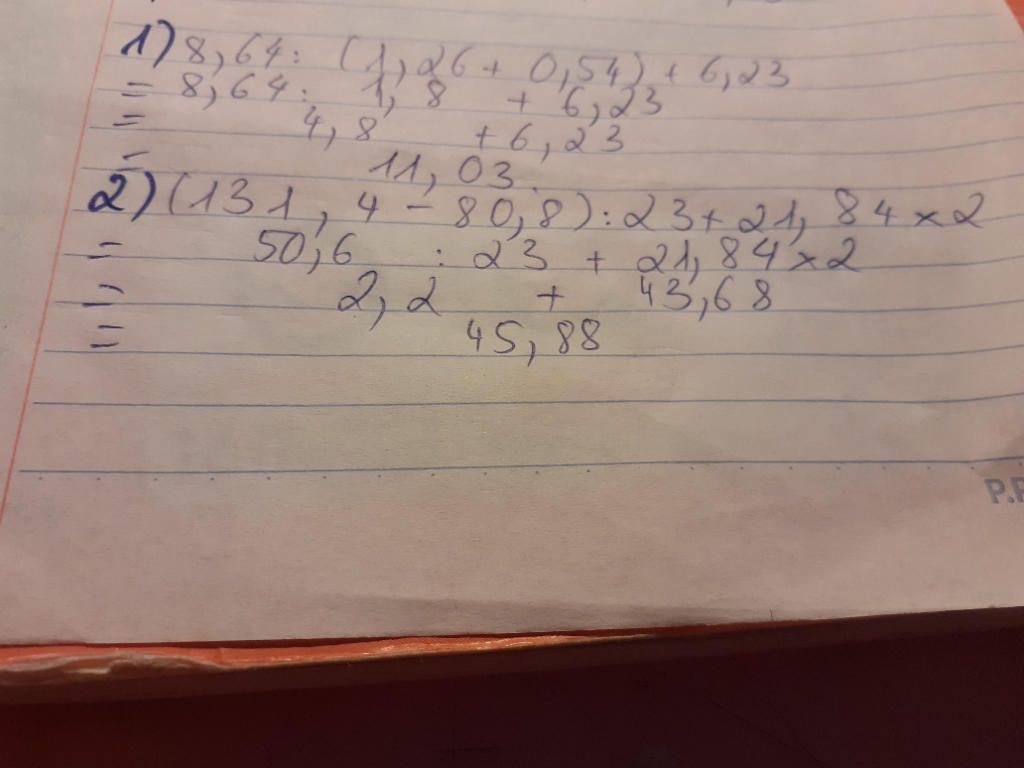 1) 8,64: (1,26+ 0,54) + 6,23
= 8,64: 1,8 + 6,23
= 4,8 +6,23
= 11,03.
2) (131,4-80,8):23+21,84×2
= 50,6 : 23 + 21,84×2
= 2,2 + 43,68
= 45,88